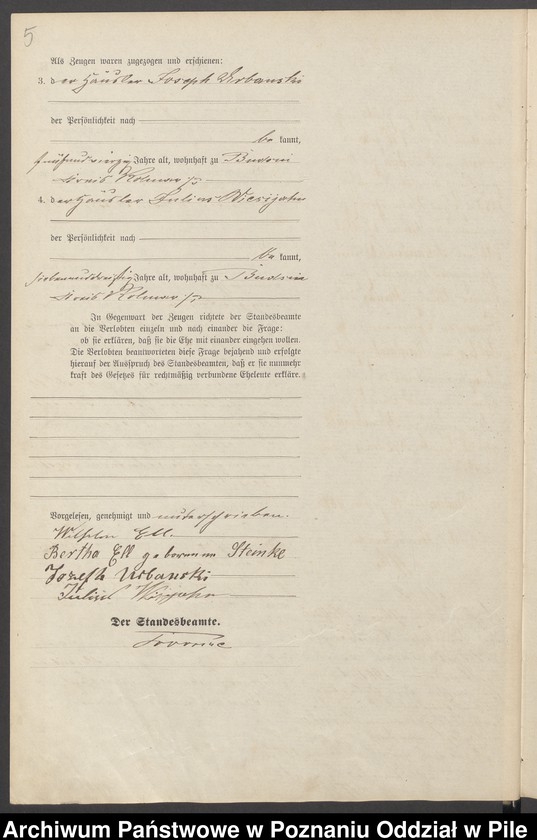 5
Als Zeugen waren zugezogen und erschienen:
3. der Häusler Joseph Urbanski
der Persönlichkeit nach
be kannt,
fünfundvierzig Jahre alt, wohnhaft zu Budsin
Kreis Kolmar i/P
4. der Häusler Julius Wiesjahn
der Persönlichkeit nach
be kannt,
siebenunddreißig Jahre alt, wohnhaft zu Budsin
Kreis Kolmar i/P
In Gegenwart der Zeugen richtete der Standesbeamte
an die Verlobten einzeln und nach einander die Frage:
ob sie erklären, daß sie die Ehe mit einander eingehen wollen.
Die Verlobten beantworteten diese Frage bejahend und erfolgte
hierauf der Ausspruch des Standesbeamten, daß er sie nunmehr
kraft des Gesetzes für rechtmäßig verbundene Eheleute erkläre.
Vorgelesen, genehmigt und unterschrieben.
Wilhelm Ell.
Bertha Ell geborenne Steinke
Jozefh Urbanski
Julius
Der Standesbeamte.
Archiwum Państwowe w Poznaniu Oddział w Pile